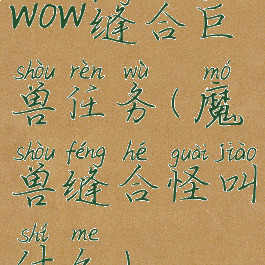 wow缝合巨
shòu rèn wù mó
兽任务(魔
shòu féng hé guài jiào
兽缝合怪叫
shí me
什么)